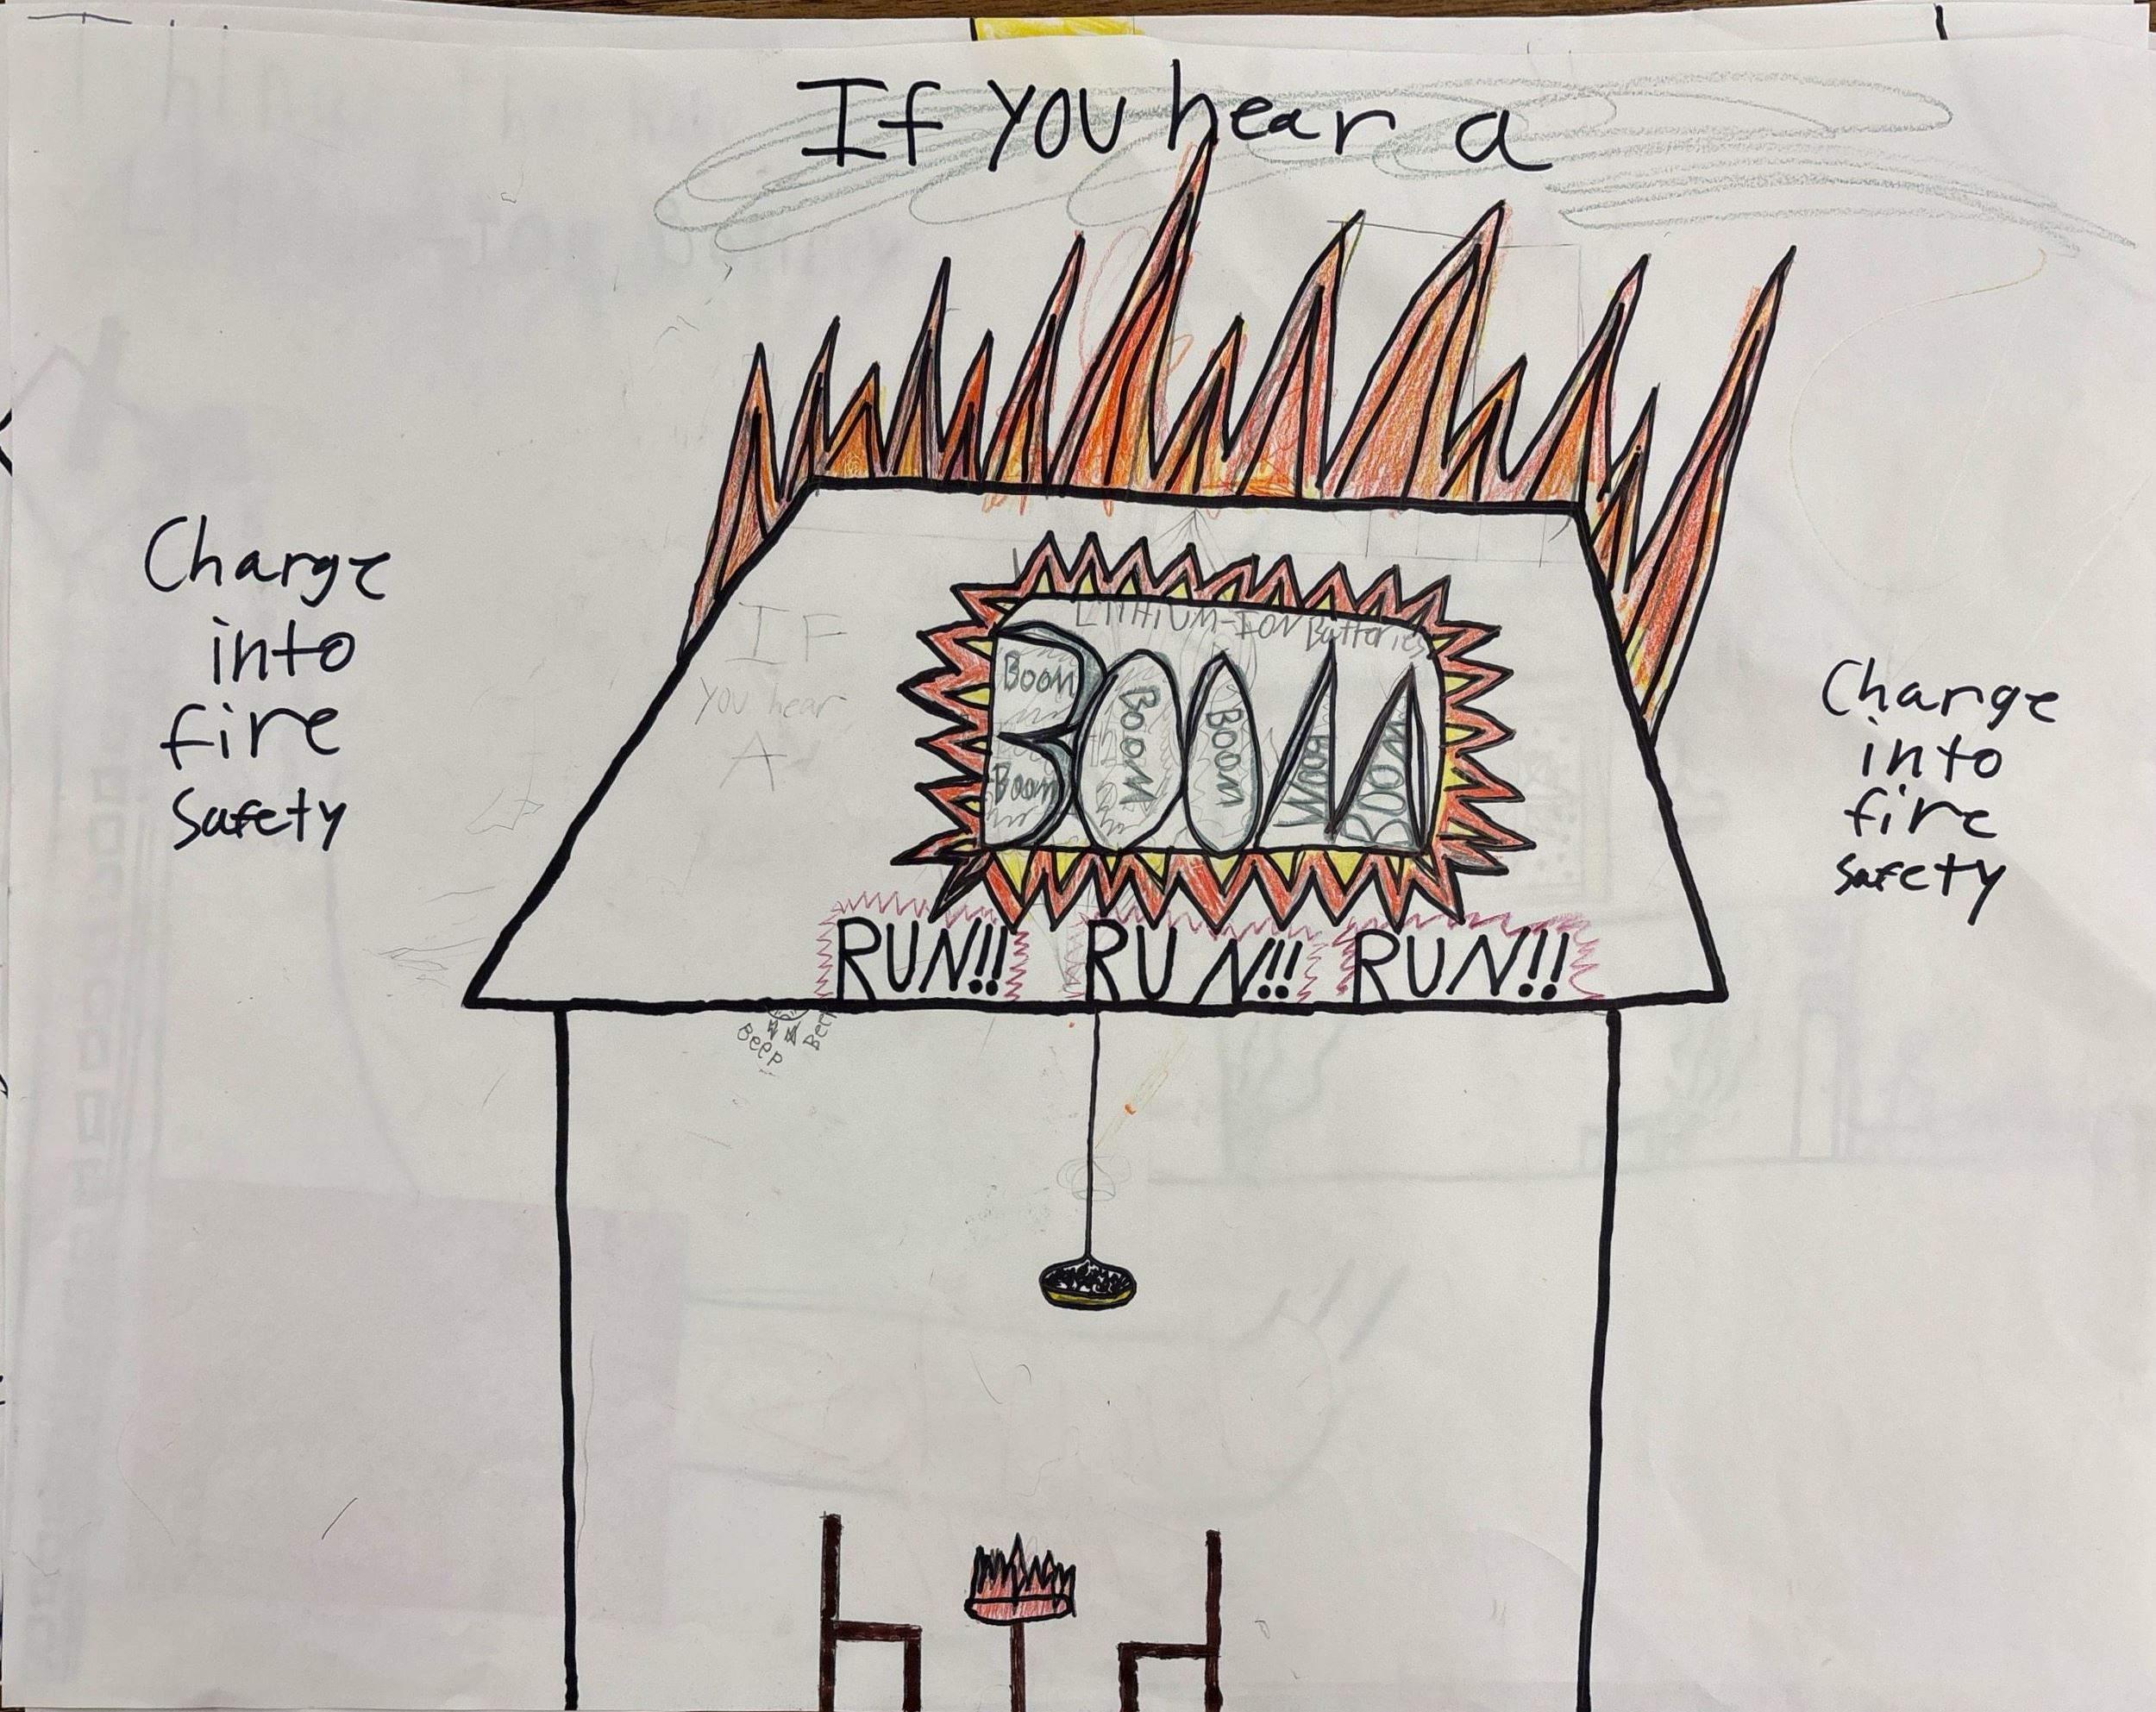 If you hear a
Charge
into
fire
safety
IF
you hear
A
LITHIUM-ION Batteries
BOOM
Boom
Boom
BOOM
BOOM
BOOM
BOOM
RUN!! RUN!! RUN!!
Beep
Beep
Charge
into
fire
safety